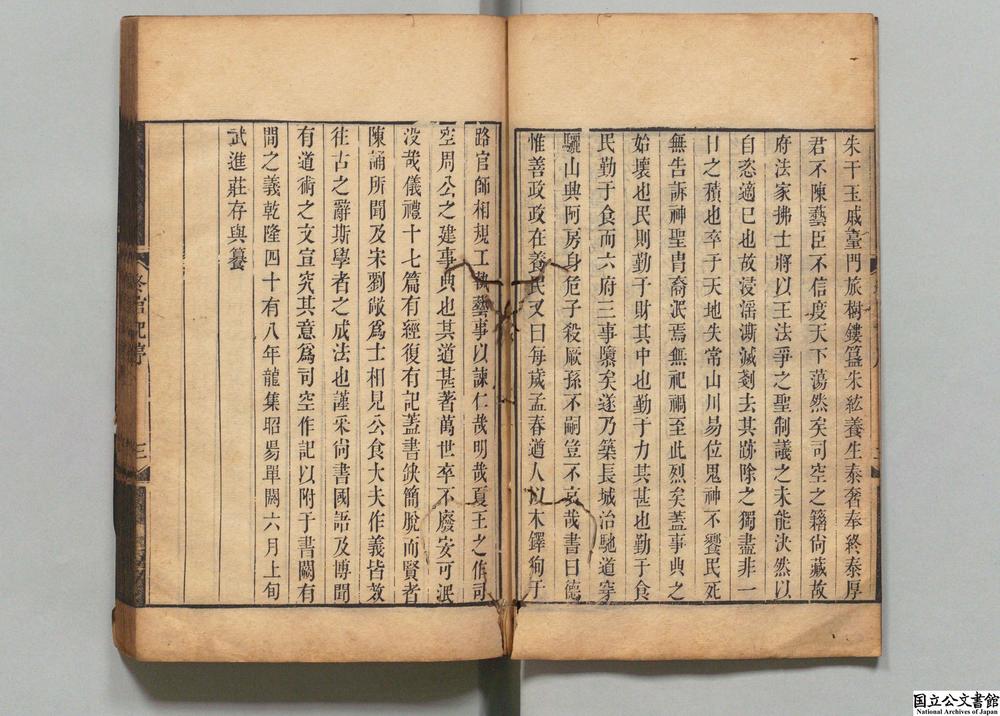 朱干玉戚臺門旅樹鏤簋朱紘養生泰奢奉終泰厚
君不陳藝臣不信度天下蕩然矣司空之籍尙藏故
府法家拂士將以王法爭之聖制議之未能決然以
自恣適巳也故浸滛澌滅剗去其跡除之獨盡非一
日之積也卒于天地失常山川易位鬼神不饗民死
無告訴神聖胄裔泯焉無祀禍至此烈矣蓋事典之
始壞也民則勤于財其中也勤于力其甚也勤于食
民勤于食而六府三事隳矣遂乃築長城治馳道穿
驪山興阿房身危子殺厥孫不嗣豈不哀哉書曰德
惟善政政在養民又曰每歲孟春遒人以木鐸徇于
路官師相規工執藝事以諫仁哉明哉夏王之作司
空周公之建事典也其道甚著萬世卒不廢安可泯
没哉儀禮十七篇有經復有記蓋書缺簡脫而賢者
陳誦所聞及宋劉敞爲士相見公食大夫作義皆放
往古之辭斯學者之成法也謹采尙書國語及博聞
有道術之文宣究其意爲司空作記以附于書闕有
間之義乾隆四十有八年龍集昭昜單閼六月上旬
武進莊存與纂
冬官記序
三
国立公文書館
National Archives of Japan